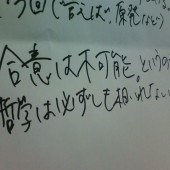 今回(言えば、原発など)
合意は不可能。というの
哲学は必ずしも相いれない